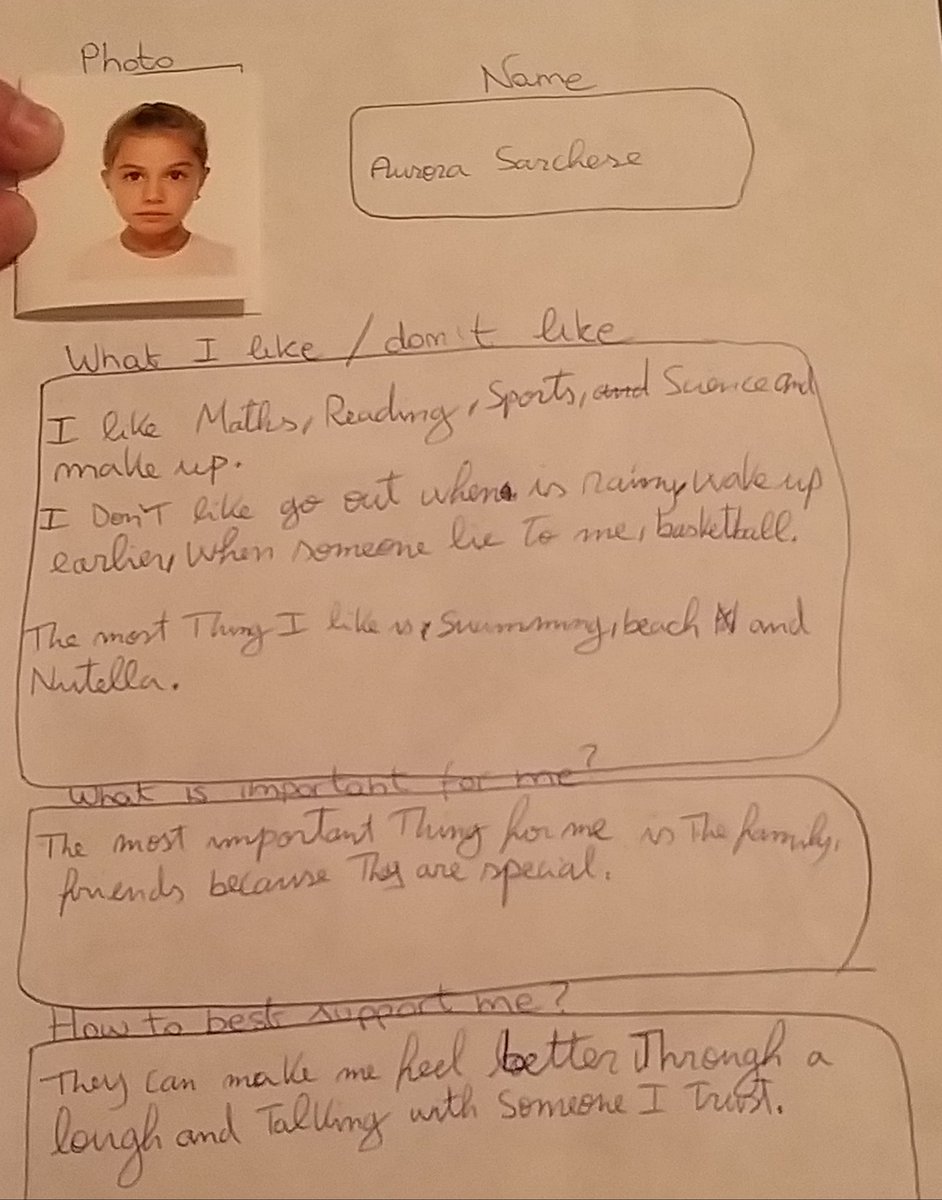 Photo
Name
Aurora Sarchese
What I like / don't like
I like Maths, Reading, Sports, and Science and
make up.
I Don't like go out when is rainy, wake up
earlier, When someone lie To me, basketball.
The most Thing I like is, Swimming, beach and
Nutella.
What is important for me?
The most important Thing for me is The family,
friends because They are special.
How to best support me?
They can make me feel better Through a
lough and Talking with someone I Trust.